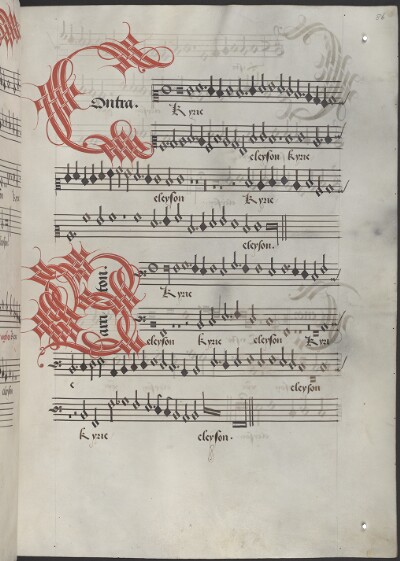 86
Contra.
Kyrie
eleyson Kyrie
eleyson Kyrie
eleyson.
Bariton.
Kyrie
eleyson Kyrie eleyson Kyri
e eleyson
Kyrie eleyson.